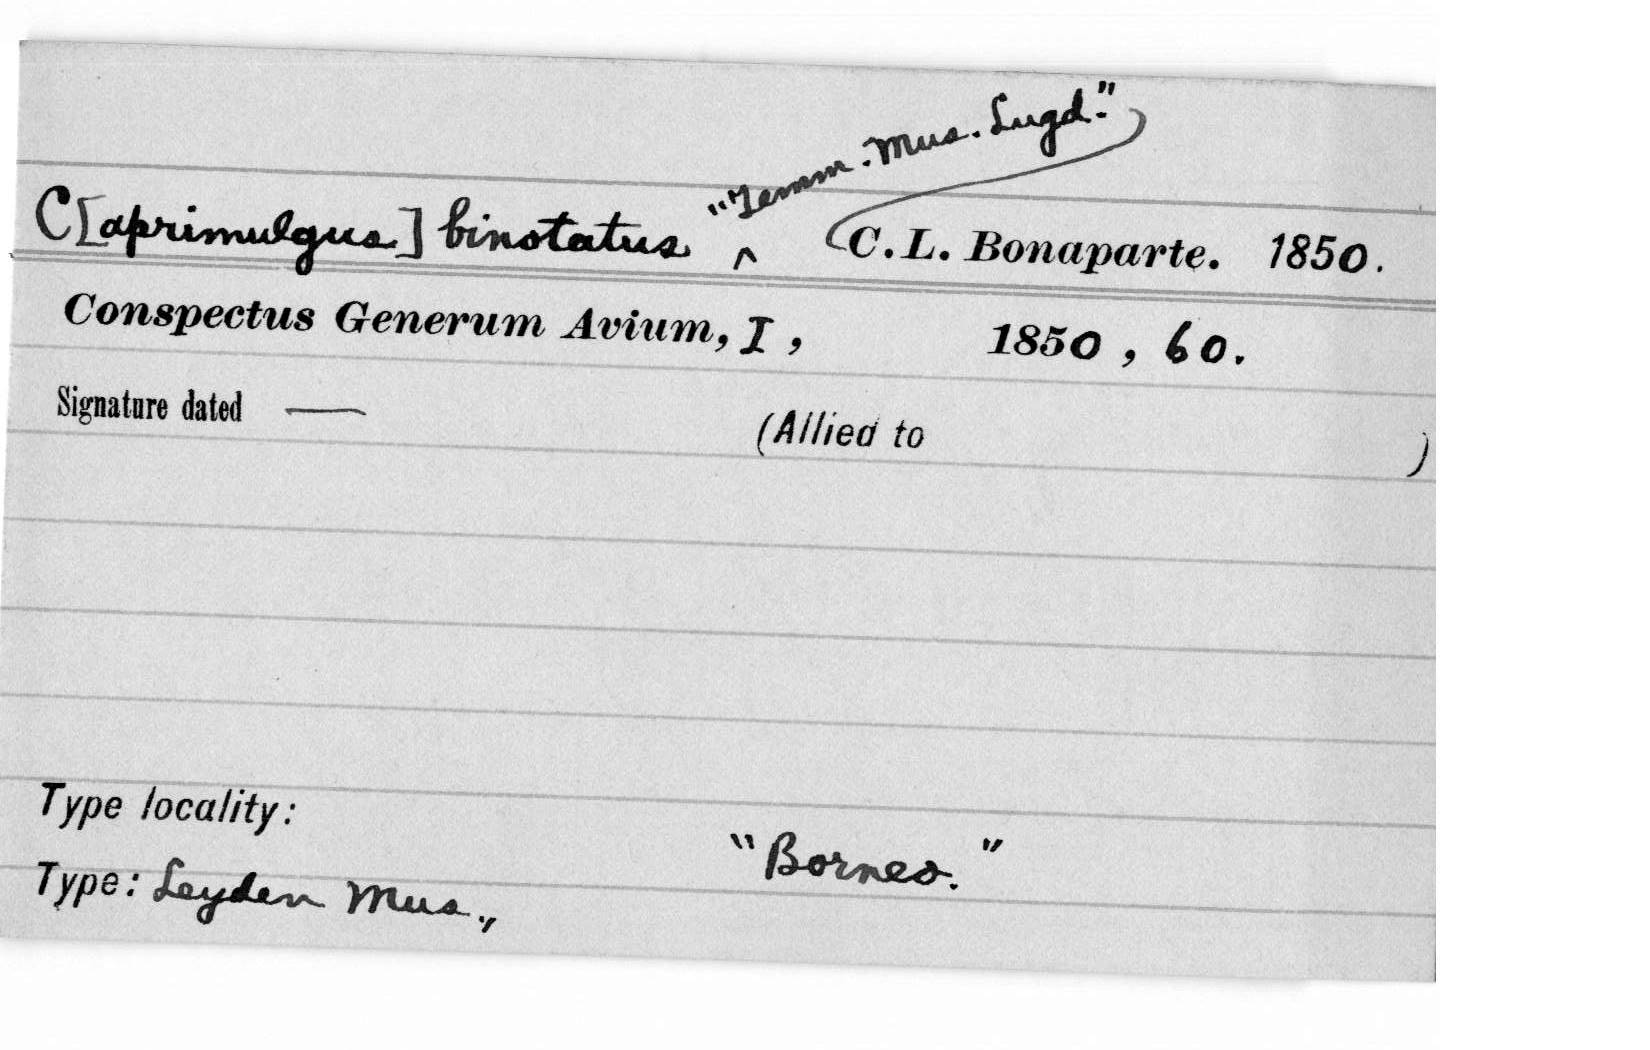 "Temm. Mus. Lugd."
C[aprimulgus] binotatus ^ C. L. Bonaparte. 1850.
Conspectus Generum Avium, I, 1850, 60.
Signature dated —
(Allied to )
Type locality:
"Borneo."
Type: Leyden Mus.,